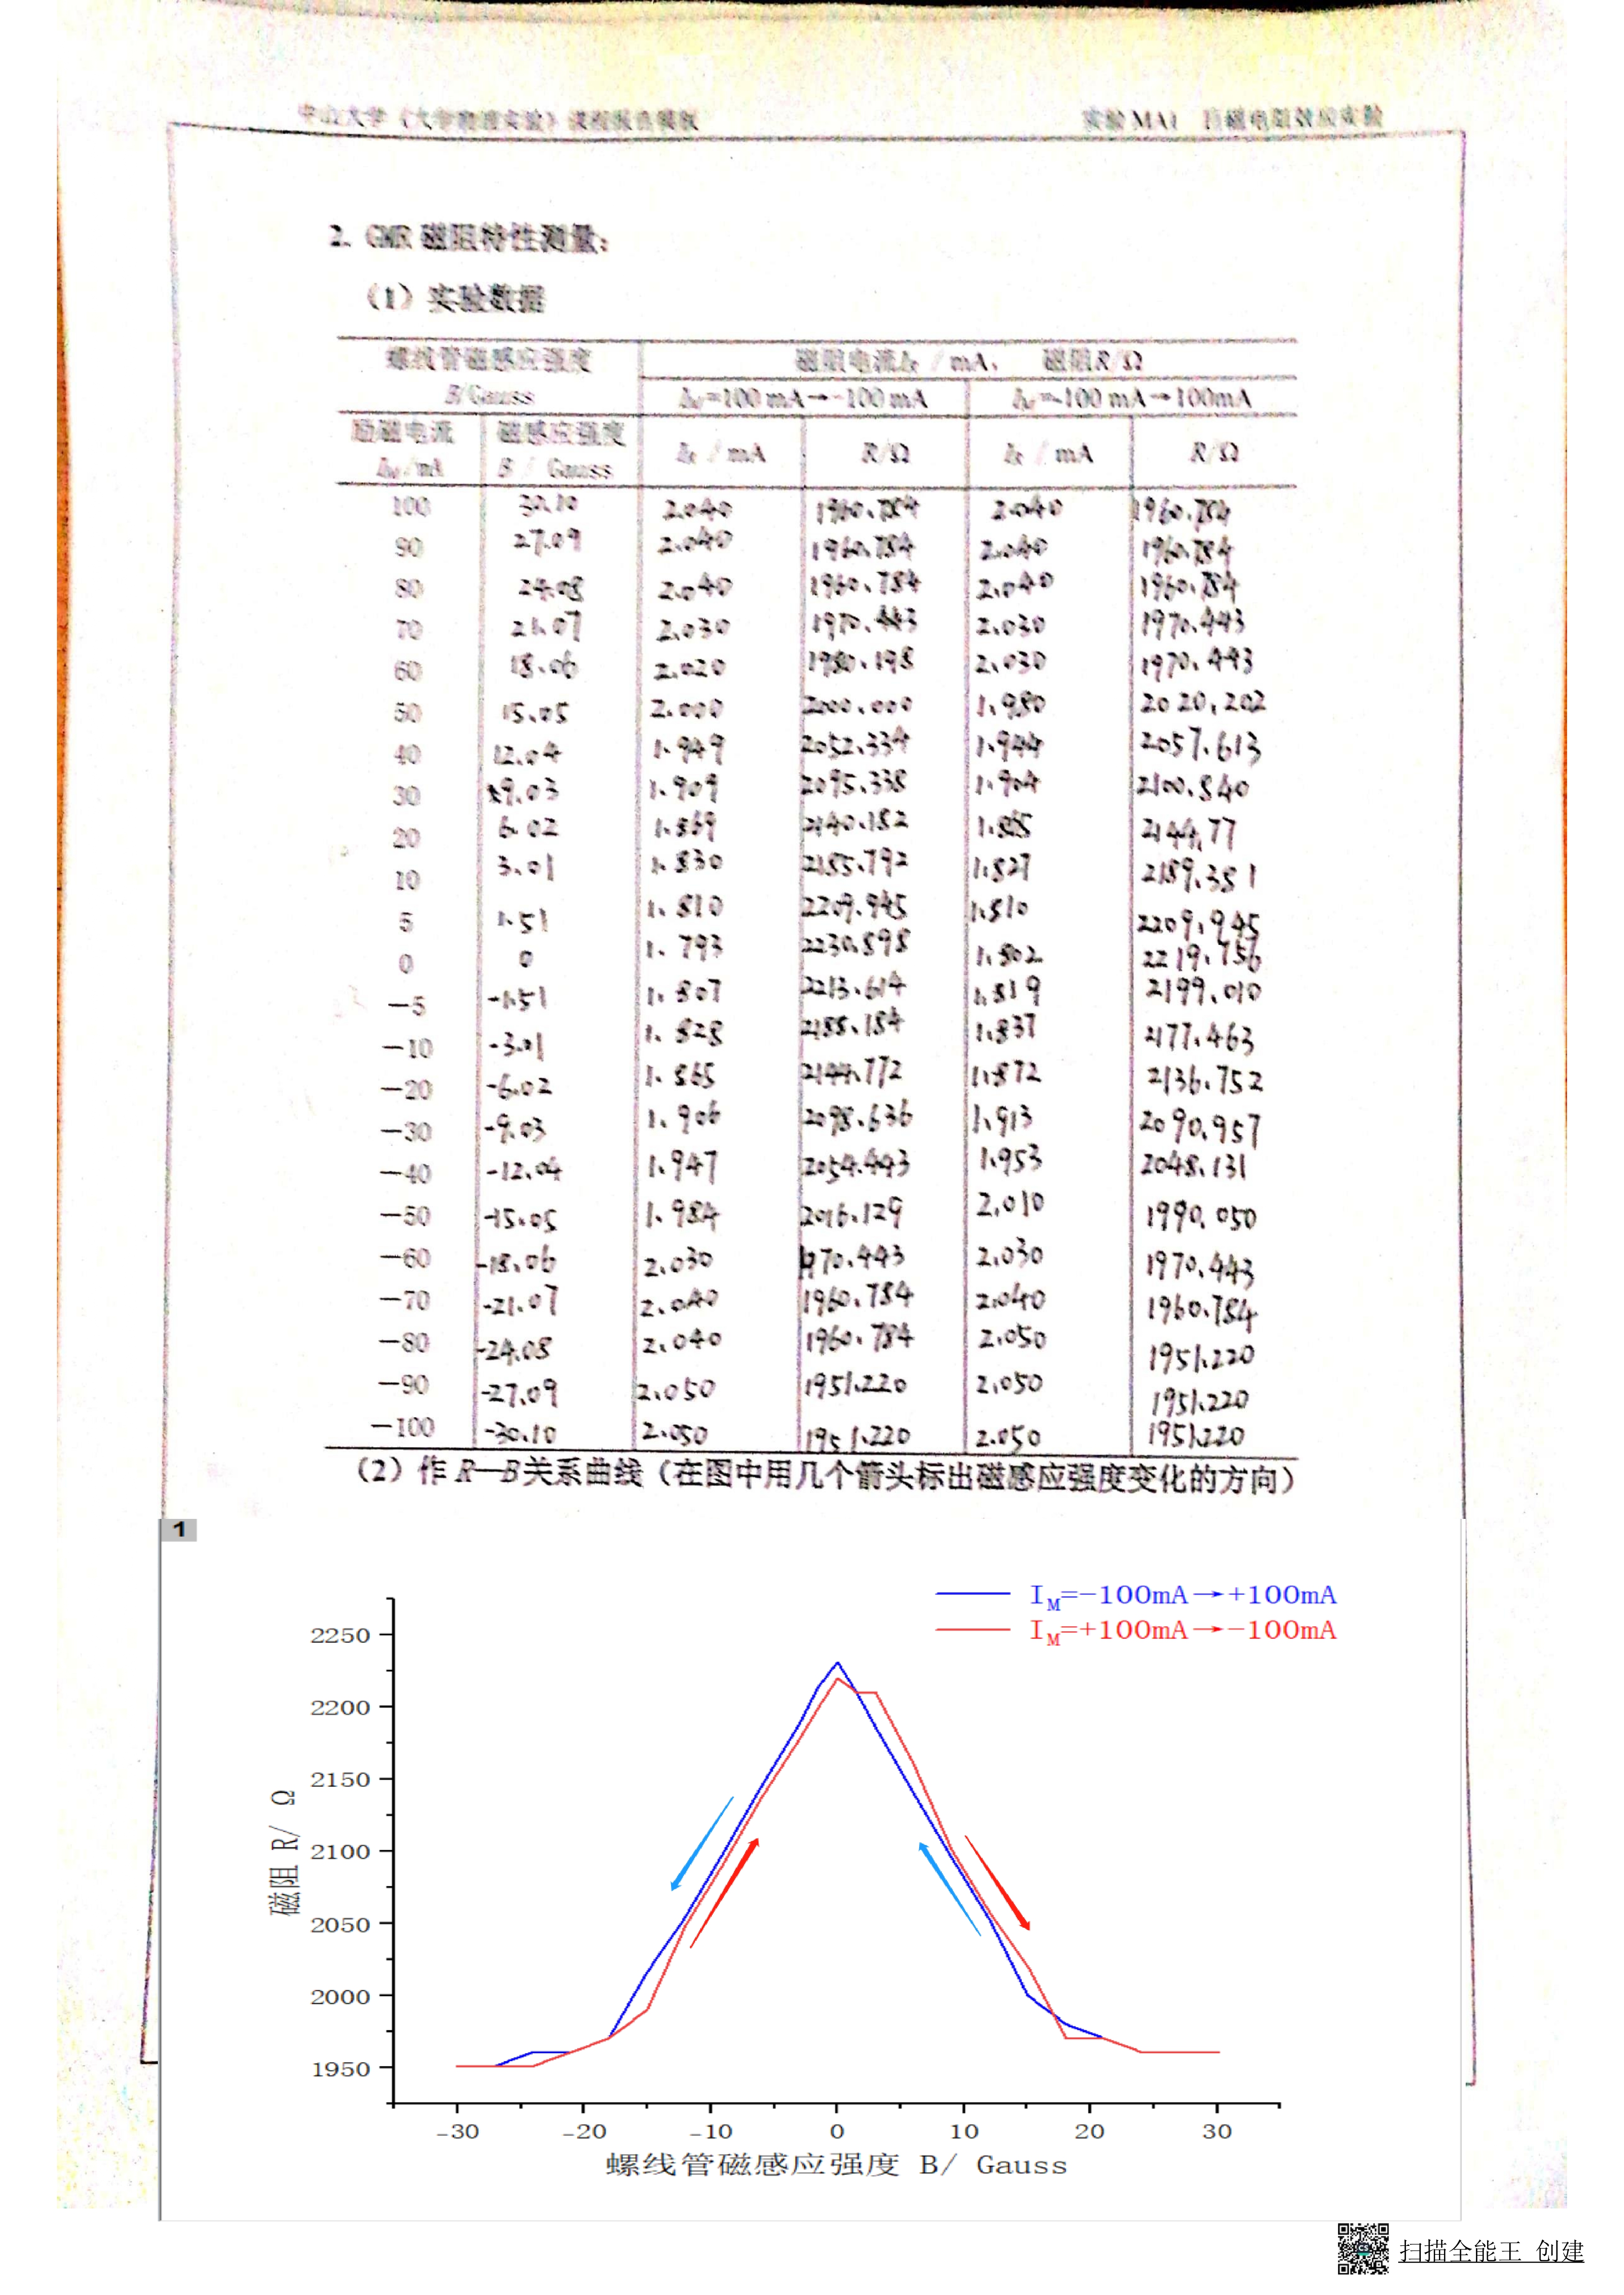 中山大学《大学物理实验》课程报告模板 实验MA1 巨磁电阻效应实验
2. GMR 磁阻特性测量：
（1）实验数据
螺线管磁感应强度 磁阻电流IR / mA、 磁阻R/Ω
B/Gauss IM=100 mA→-100 mA IM=-100 mA→100mA
励磁电流 磁感应强度
IM/mA B / Gauss IR / mA R/Ω IR / mA R/Ω
100 30.10 2.040 1960.784 2.040 1960.784
90 27.09 2.040 1960.784 2.040 1960.784
80 24.08 2.040 1960.784 2.040 1960.784
70 21.07 2.030 1970.443 2.030 1970.443
60 18.06 2.020 1980.198 2.030 1970.443
50 15.05 2.000 2000.000 1.980 2020.202
40 12.04 1.949 2052.334 1.944 2057.613
30 9.03 1.909 2095.338 1.904 2100.840
20 6.02 1.869 2140.182 1.865 2144.77
10 3.01 1.830 2185.792 1.827 2189.381
5 1.51 1.810 2209.945 1.810 2209.945
0 0 1.793 2230.898 1.802 2219.756
-5 -1.51 1.807 2213.614 1.819 2199.010
-10 -3.01 1.828 2188.184 1.837 2177.463
-20 -6.02 1.865 2144.772 1.872 2136.752
-30 -9.03 1.906 2098.636 1.913 2090.957
-40 -12.04 1.947 2054.443 1.953 2048.131
-50 -15.05 1.984 2016.129 2.010 1990.050
-60 -18.06 2.030 1970.443 2.030 1970.443
-70 -21.07 2.040 1960.784 2.040 1960.784
-80 -24.08 2.040 1960.784 2.050 1951.220
-90 -27.09 2.050 1951.220 2.050 1951.220
-100 -30.10 2.050 1951.220 2.050 1951.220
（2）作 R—B关系曲线（在图中用几个箭头标出磁感应强度变化的方向）
1
IM=-100mA→+100mA
IM=+100mA→-100mA
2250
2200
2150
2100
2050
2000
1950
磁阻 R/ Ω
-30 -20 -10 0 10 20 30
螺线管磁感应强度 B/ Gauss
扫描全能王 创建